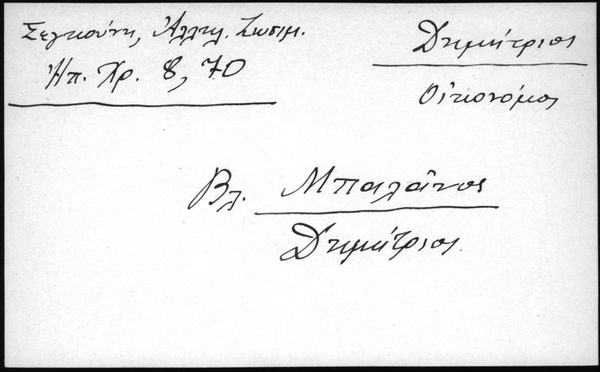 Σεγκούνη, Ἀλληλ. Ζωσιμ.
Ἠπ. Χρ. 8, 70
Δημήτριος
Οἰκονόμος
Βλ. Μπαλάνος
Δημήτριος.